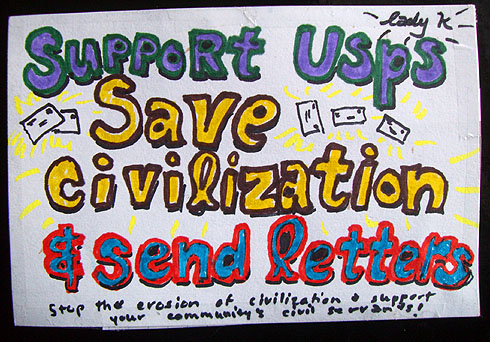 lady k
Support Usps
Save
civilization
& send letters
Stop the erosion of civilization & support
your community's civil servants!